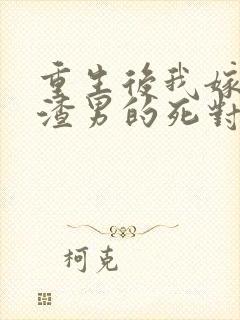 重生後我嫁
渣男的死對
柯克